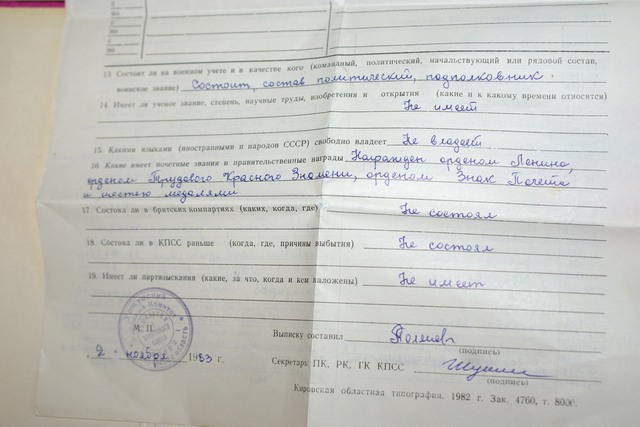 13. Состоит ли на военном учете и в качестве кого (командный, политический, начальствующий или рядовой состав,
воинское звание) Состоит, состав политический, подполковник.
14. Имеет ли ученое звание, степень, научные труды, изобретения и открытия (какие и к какому времени относятся)
Не имеет
15. Какими языками (иностранными и народов СССР) свободно владеет Не владеет
16. Какие имеет почетные звания и правительственные награды Награжден орденом Ленина,
орденом Трудового Красного Знамени, орденом Знак Почета
и шестью медалями
17. Состоял ли в братских компартиях (каких, когда, где) Не состоял
18. Состоял ли в КПСС раньше (когда, где, причины выбытия) Не состоял
19. Имеет ли партвзыскания (какие, за что, когда и кем наложены) Не имеет
М. П.
Выписку составил
(подпись)
2 ноября 1983 г.
Секретарь ПК, РК, ГК КПСС
(подпись)
Кировская областная типография. 1982 г. Зак. 4760, т. 8000.